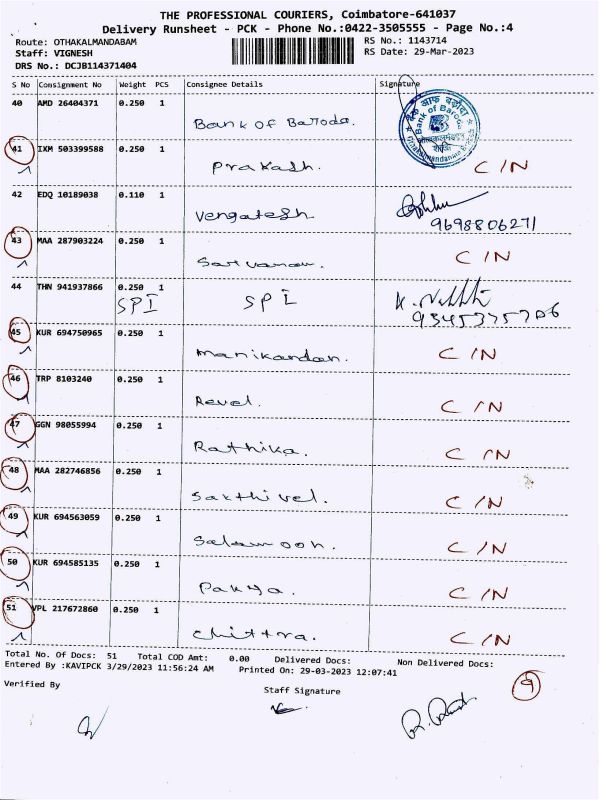 THE PROFESSIONAL COURIERS, Coimbatore-641037
Delivery Runsheet - PCK - Phone No.:0422-3505555 - Page No.:4
Route: OTHAKALMANDABAM RS No.: 1143714
Staff: VIGNESH RS Date: 29-Mar-2023
DRS No.: DCJB114371404
S No Consignment No Weight PCS Consignee Details Signature
40 AMD 26404371 0.250 1
Bank of Baroda.
Bank of Baroda
41 IXM 503399588 0.250 1
Prakash. C/N
42 EDQ 10189038 0.110 1
Vengatesh
9698806271
43 MAA 287903224 0.250 1
Sarvanan. C/N
44 THN 941937866 0.250 1
SPI SPI
45 KUR 694750965 0.250 1
Manikandan. C/N
46 TRP 8103240 0.250 1
Revel. C/N
47 GGN 98055994 0.250 1
Rathika. C/N
48 MAA 282746856 0.250 1
Sakthivel. C/N
49 KUR 694563059 0.250 1
C/N
50 KUR 694585135 0.250 1
C/N
51 VPL 217672860 0.250 1
Chittra. C/N
Total No. Of Docs: 51 Total COD Amt: 0.00 Delivered Docs: Non Delivered Docs:
Entered By :KAVIPCK 3/29/2023 11:56:24 AM Printed On: 29-03-2023 12:07:41
9
Verified By Staff Signature